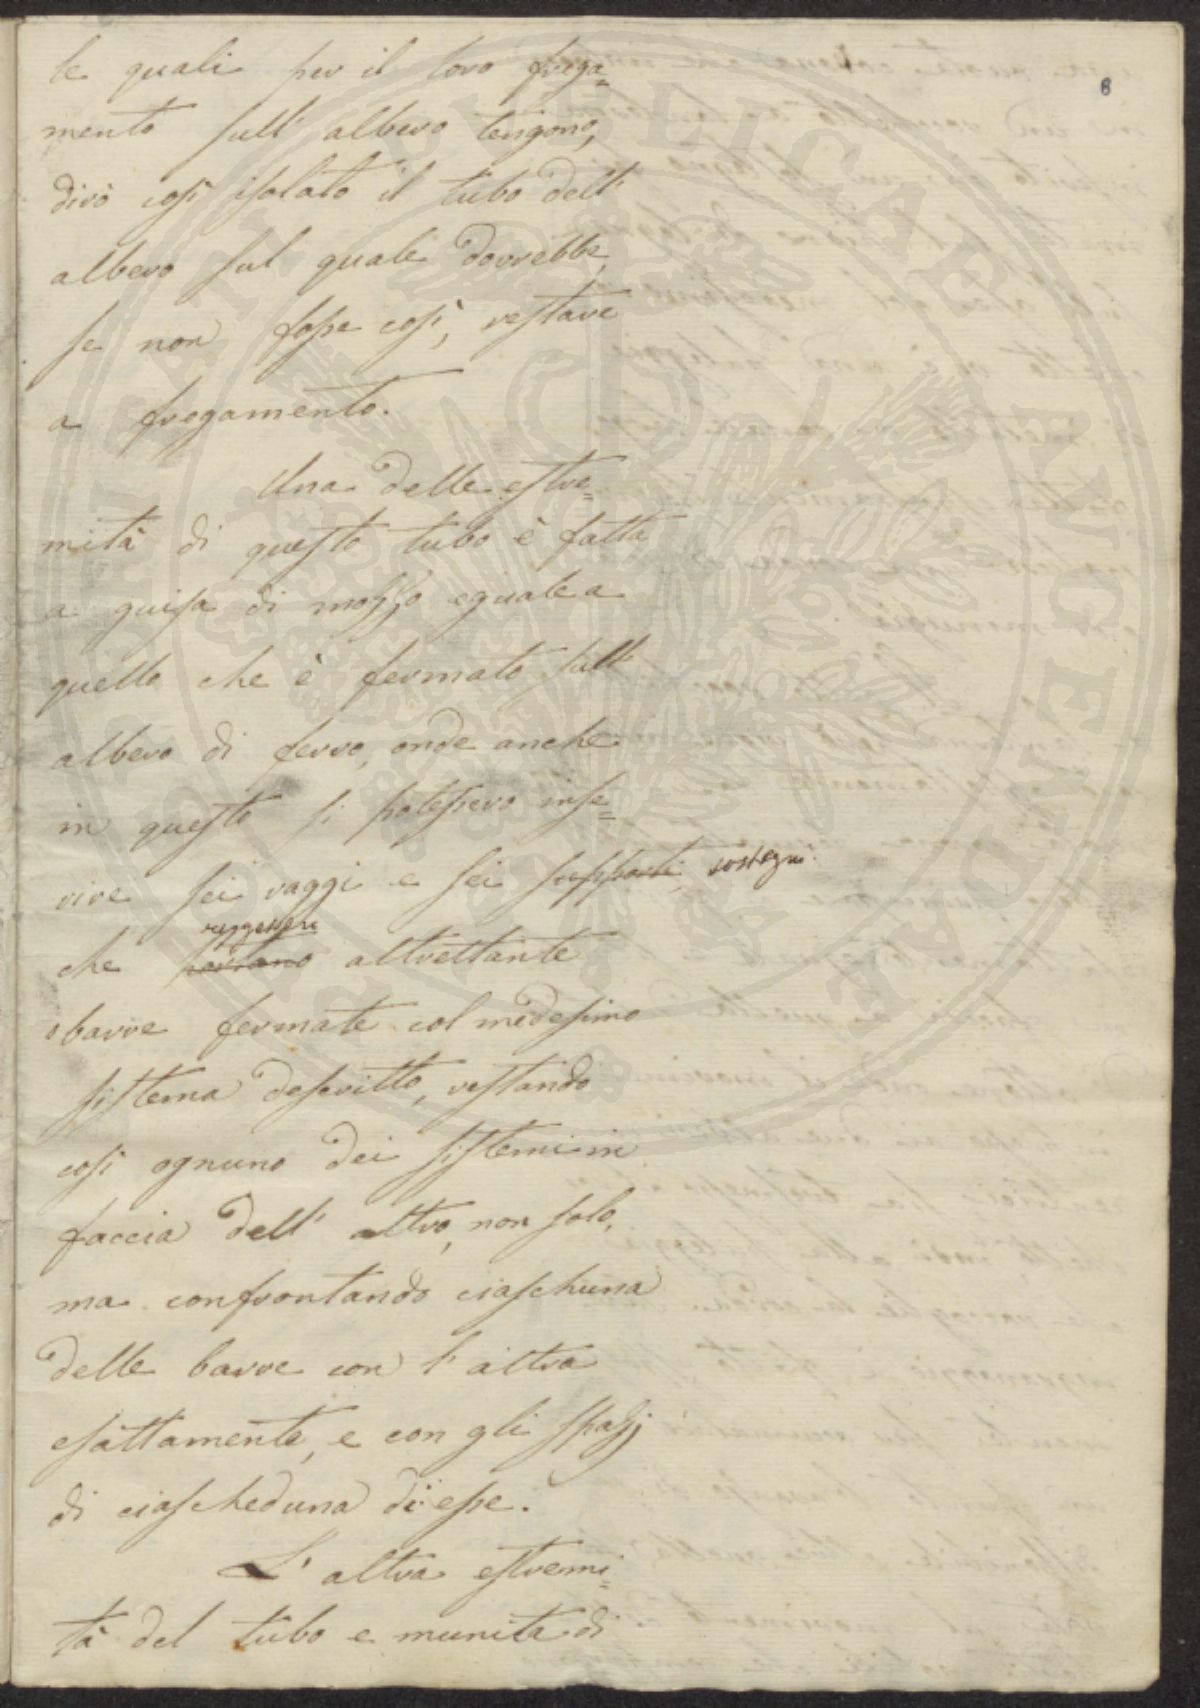 6
le quali per il loro frega=
mento sull' albero tengono,
dirò così isolato il tubo dell'
albero sul quale dovrebbe,
se non fosse così, restare
a fregamento.
Una delle estre=
mità di questo tubo è fatta
a guisa di mozzo eguale a
quello che è fermato sull'
albero di ferro, onde anche
in questo si potessero inse=
rire sei raggi e sei supporti sostegni
reggessero
che portano altrettante
sbarre fermate col medesimo
sistema descritto, restando
così ognuno dei sistemi in
faccia dell' altro, non solo,
ma confrontando ciaschuna
delle barre con l' altra
esattamente, e con gli spazj
di ciascheduna di esse.
L' altra estremi=
tà del tubo e munita di